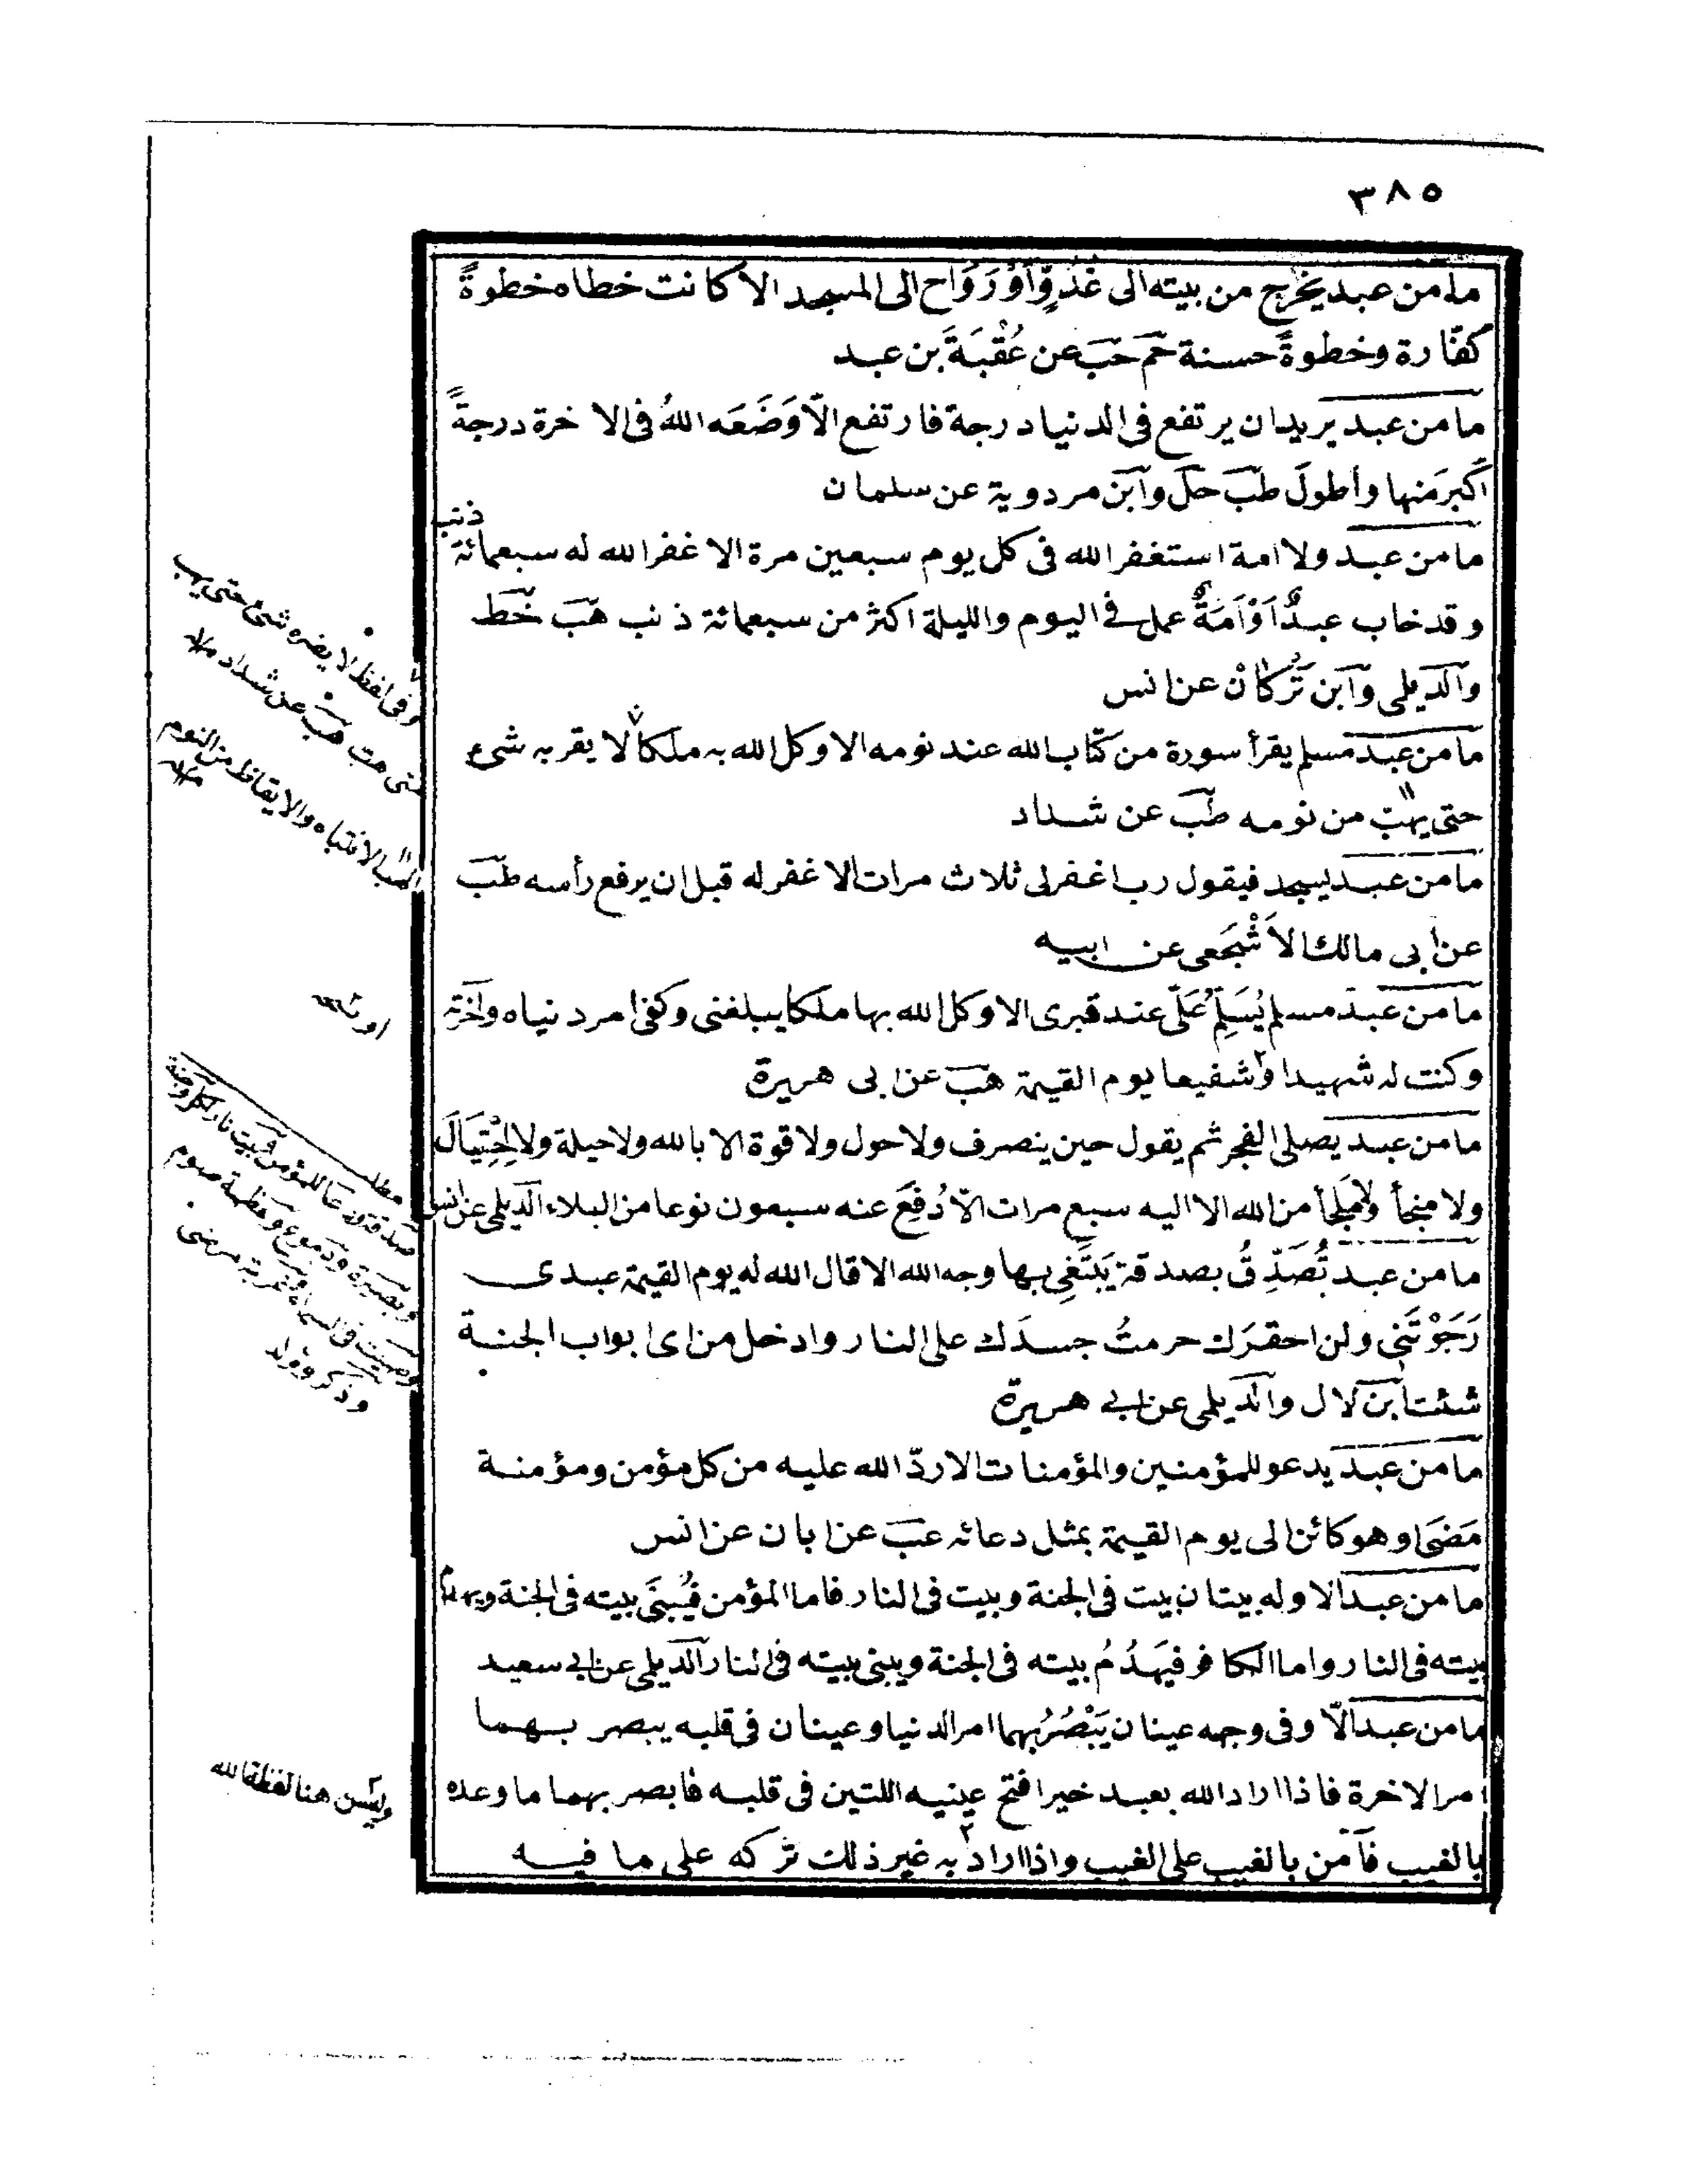 ٣٨٥
ما من عبد يخرج من بيته الى غُدُوٍّ اَوْ رَوَاح الى المسجد الا كانت خطاه خطوةً
كفّارة وخطوةً حسنة حم حب عن عُقْبَةَ بن عبد
ما من عبد يريد ان يرتفع فى الدنيا درجة فارتفع الّا وَضَعَه اللهُ فى الاخرة درجةً
اكبرَ منها واطولَ طب حل وابن مردوية عن سلمان
ما من عبد ولا امة استغفر الله فى كل يوم سبعين مرة الا غفر الله له سبعمائة ذنب
وقد خاب عبدٌ اَوْ اَمَةٌ عمل فى اليوم والليلة اكثر من سبعمائة ذنب هب خط
والديلمى وابن تُرْكَانْ عن انس
ما من عبد مسلم يقرأ سورة من كتاب الله عند نومه الا وكل الله به ملكا لا يقربه شئ
حتى يهب من نومه طب عن شداد
ما من عبد يسجد فيقول رب اغفر لى ثلاث مرات الا غفر له قبل ان يرفع رأسه طب
عن ابى مالك الاَشْجَعى عن ابيه
ما من عبد مسلم يُسَلِّمُ عَلَىَّ عند قبرى الا وكل الله بها ملكا يبلغنى وكفى امر دنياه واخرته
وكنت له شهيدا وشفيعا يوم القيمة هب عن ابى هريرة
ما من عبد يصلى الفجر ثم يقول حين ينصرف ولا حول ولا قوة الا بالله ولا حيلة ولا اِحْتِيَالَ
ولا منجأ ولا ملجأ من الله الا اليه سبع مرات الّا دُفِعَ عنه سبعون نوعا من البلاء الديلمى عن انس
ما من عبد تُصَدِّقُ بصدقة يَبْتَغِى بها وجه الله الا قال الله له يوم القيمة عبدى
رَجَوْتَنِى ولن احقرَك حرمتُ جسدَك على النار وادخل من اى ابواب الجنة
شئت ابن لال والديلمى عن ابى هريرة
ما من عبد يدعو للمؤمنين والمؤمنات الا ردّ الله عليه من كل مؤمن ومؤمنة
مَضَى او هو كائن الى يوم القيمة بمثل دعائه عب عن ابان عن انس
ما من عبد الا وله بيتان بيت فى الجنة وبيت فى النار فاما المؤمن فيُبنَى بيته فى الجنة ويهدم
بيته فى النار واما الكافر فيَهدُمُ بيته فى الجنة ويبنى بيته فى النار الديلمى عن ابى سعيد
ما من عبد الّا وفى وجهه عينان يَبْصُرُ بهما امر الدنيا وعينان فى قلبه يبصر بهما
امر الاخرة فاذا اراد الله بعبد خيرا فتح عينيه اللتين فى قلبه فابصر بهما ما وعده
بالغيب فآمن بالغيب على الغيب واذا اراد به غير ذلك تركه على ما فيه
وفى لفظ لا يضره شئ حتى يهب
متى هب هب عن شداد
الهب الانتباه والايقاظ من النوم
مطلب
وذكر وولد
وليس هنا لفظة الله